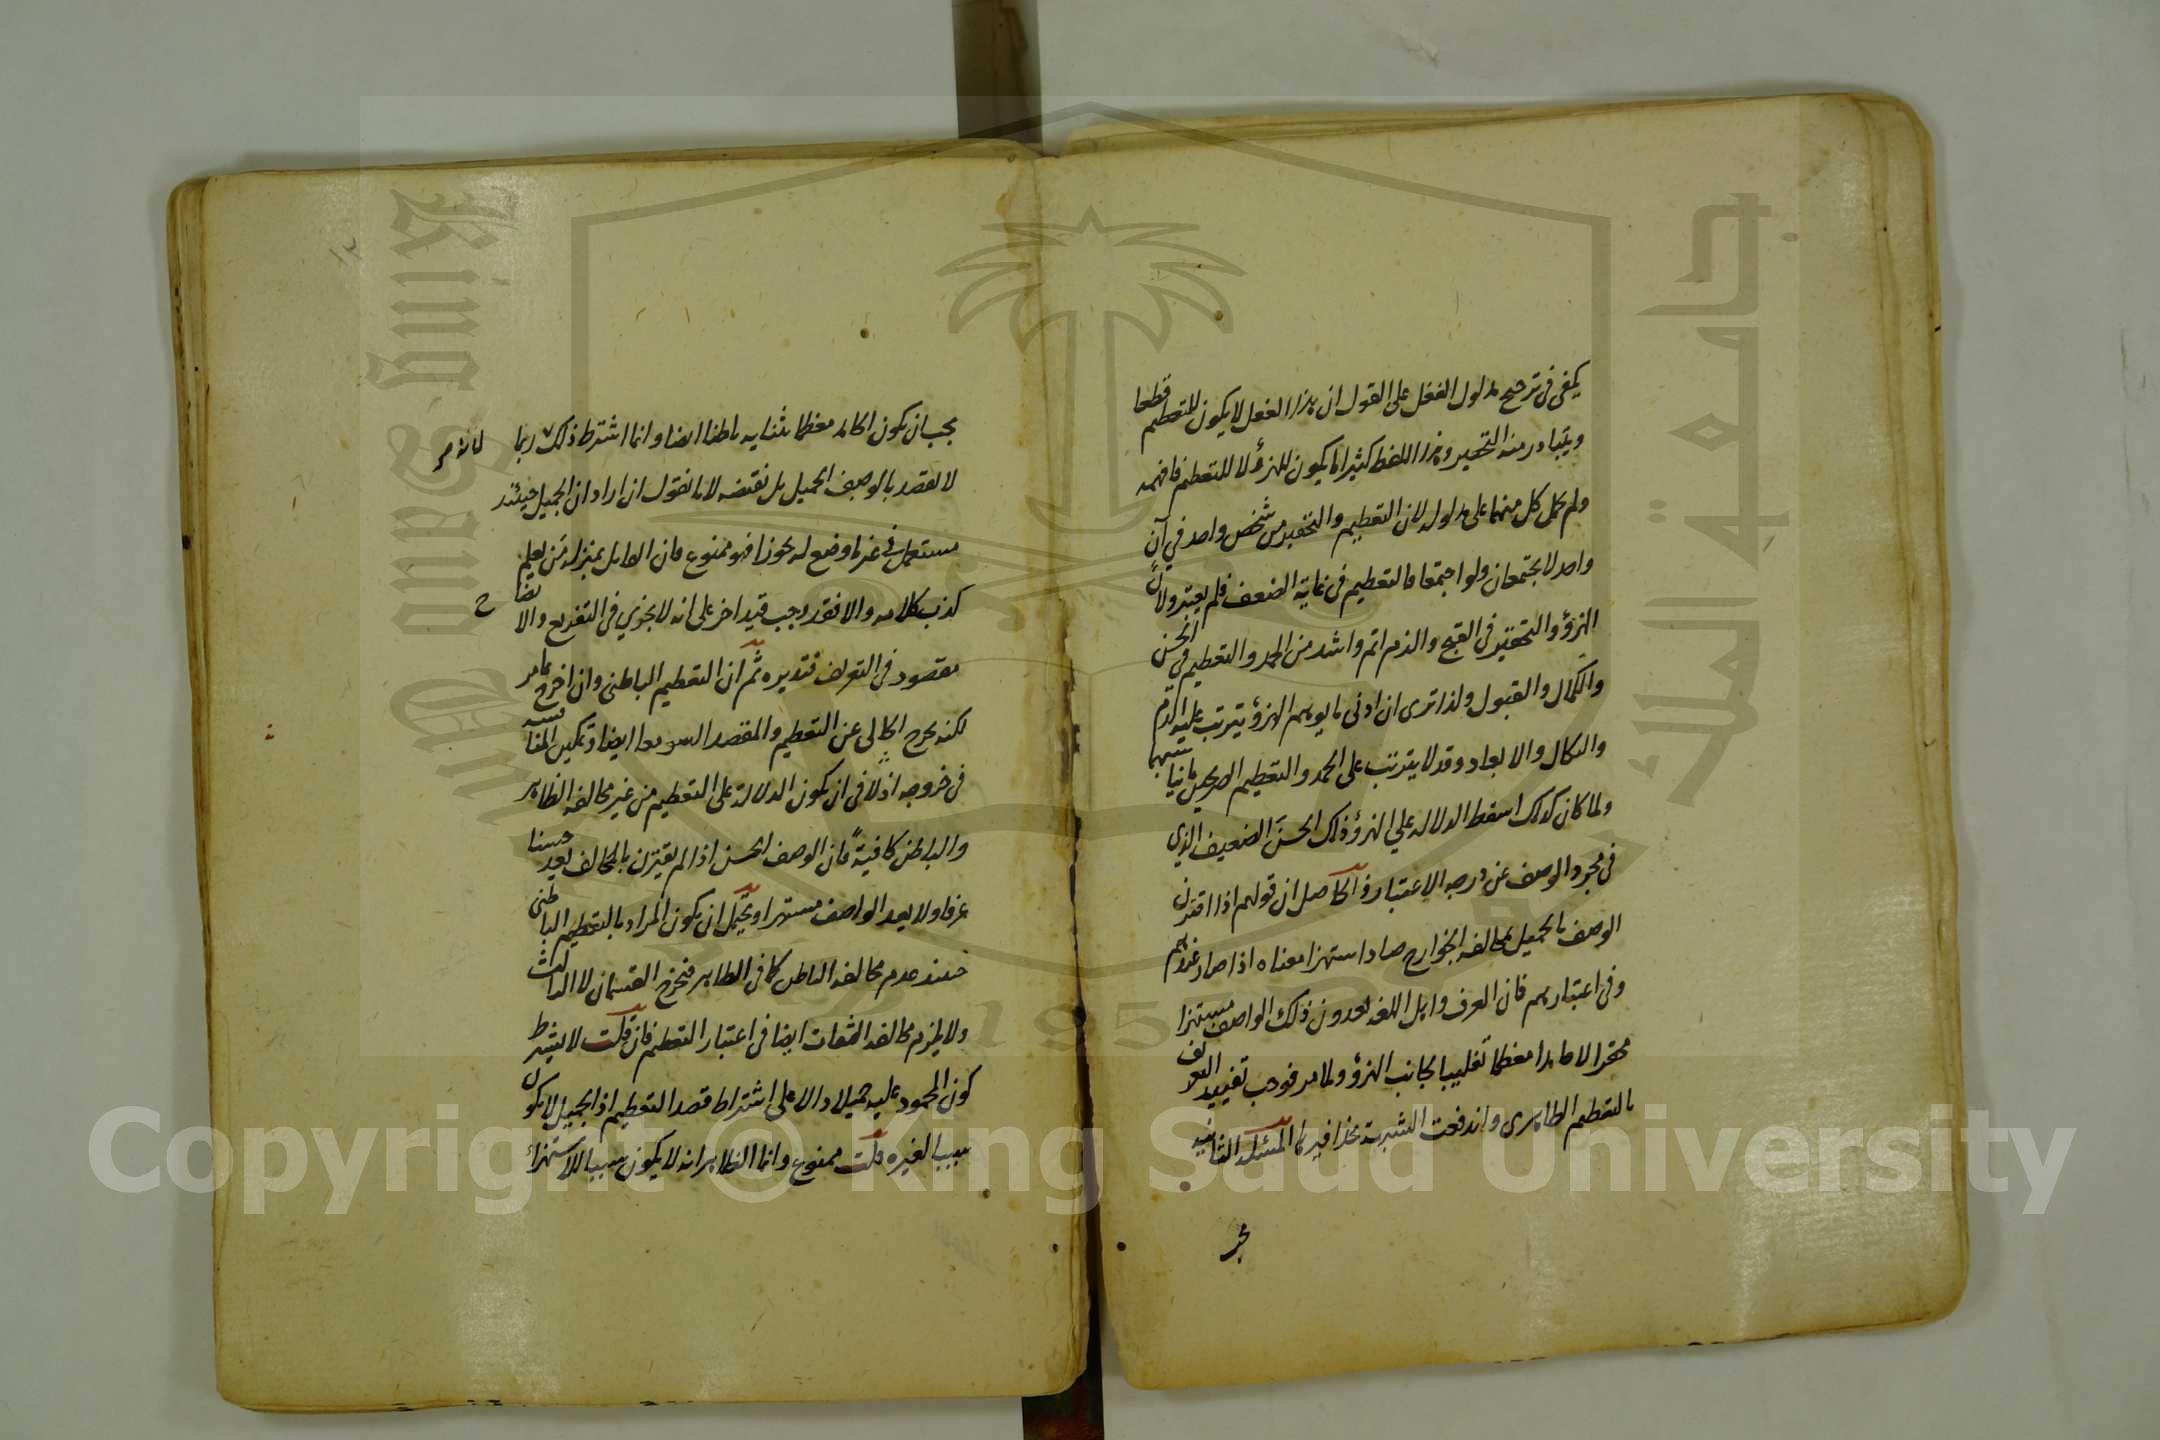 يكفي في ترجيح مدلول الفعل على القول ان هذا الفعل لا يكون للتعظيم قطعا
ويتبادر منه التحقير وهذا اللفظ كثيرا ما يكون للهزؤ لا للتعظيم فافهمه
ولم يحمل كل منهما على مدلوله لان التعظيم والتحقير من شخص واحد في آن
واحد لا يجتمعان ولو اجتمعا فالتعظيم في غاية الضعف فلم يعتبر ولان
الهزؤ والتحقير في القبح والذم اتم واشد من الحمد والتعظيم في الحسن
والكمال والقبول ولذا ترى ان ادنى ما يوهم الهزؤ يترتب عليه الذم
والنكال والابعاد وقد لا يترتب على الحمد والتعظيم الصريحين
ولما كان كذلك اسقط الدلالة على الهزؤ ذلك الحسن الضعيف الذي
في مجرد الوصف عن درجة الاعتبار فالحاصل ان قولهم اذا اقترن
الوصف بالجميل بمخالفة الجوارح صار استهزا معناه اذا صار عندهم
وفي اعتبارهم فان العرف واهل اللغة يعدون ذلك الواصف مستهزا
محقرا لا حامدا معظما تغليبا لجانب الهزؤ ولما مر فوجب تقييد التعريف
بالتعظيم الظاهري واندفعت الشبهة بحذافيرها المسئلة الثانية
يجب
يجب ان يكون الحامد معظما بثنايه باطنا ايضا وانما اشترط ذلك ربما
لا يقصد بالوصف الجميل بل نقيضه لانا نقول ان اراد ان الجميل حينئذ
مستعمل في غير ما وضع له تجوزا فهو ممنوع فان القايل بمنزلة من يعلم
كذب كلامه والا فقد وجب قيد اخر على انه لا يجزي في التفريع والا
مقصود في التعريف فتدبره ثم ان التعظيم الباطني وان اخرج
لكنه يخرج الخالي عن التعظيم والمقصد ايضا
في خروجه اذ لا في ان يكون الدلالة على التعظيم من غير مخالفة الظاهر
والباطن كافية فان الوصف الحسن اذا لم يقترن بالمخالف يعد حسنا
عرفا ولا يعد الواصف مستهزا ويحتمل ان يكون المراد بالتعظيم الباطني
حينئذ عدم مخالفة الباطن كما في الظاهر فيخرج القسمان لا الثالث
ولا يلزم مخالفة الثقات ايضا في اعتبار التعظيم فان قلت لا يشترط
كون المحمود عليه جميلا دالا على اشتراط قصد التعظيم اذ الجميل لا يكون
سببا لغيره قلت ممنوع وانما الظاهر انه لا يكون سببا للاستهزاء
Copyright © King Saud University
King Saud University
جامعة الملك
195
١٣